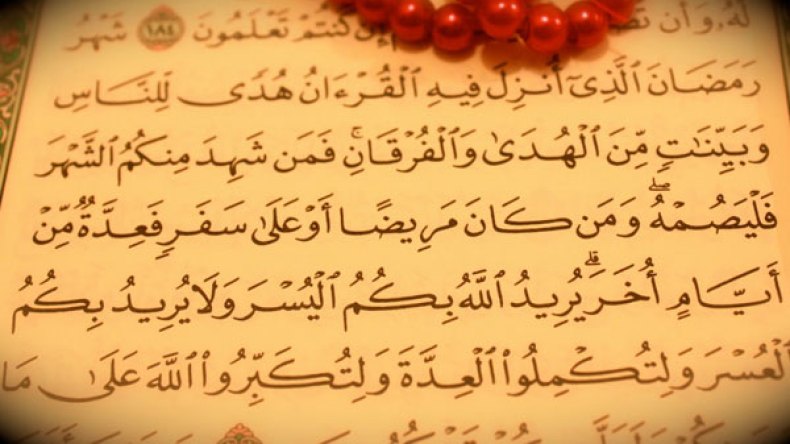 لَهُۥ وَأَن إِن كُنتُمْ تَعْلَمُونَ ١٨٤ شَهْرُ
رَمَضَانَ ٱلَّذِىٓ أُنزِلَ فِيهِ ٱلْقُرْءَانُ هُدًى لِّلنَّاسِ
وَبَيِّنَٰتٍ مِّنَ ٱلْهُدَىٰ وَٱلْفُرْقَانِ ۚ فَمَن شَهِدَ مِنكُمُ ٱلشَّهْرَ
فَلْيَصُمْهُ ۖ وَمَن كَانَ مَرِيضًا أَوْ عَلَىٰ سَفَرٍ فَعِدَّةٌ مِّنْ
أَيَّامٍ أُخَرَ ۗ يُرِيدُ ٱللَّهُ بِكُمُ ٱلْيُسْرَ وَلَا يُرِيدُ بِكُمُ
ٱلْعُسْرَ وَلِتُكْمِلُوا۟ ٱلْعِدَّةَ وَلِتُكَبِّرُوا۟ ٱللَّهَ عَلَىٰ مَا